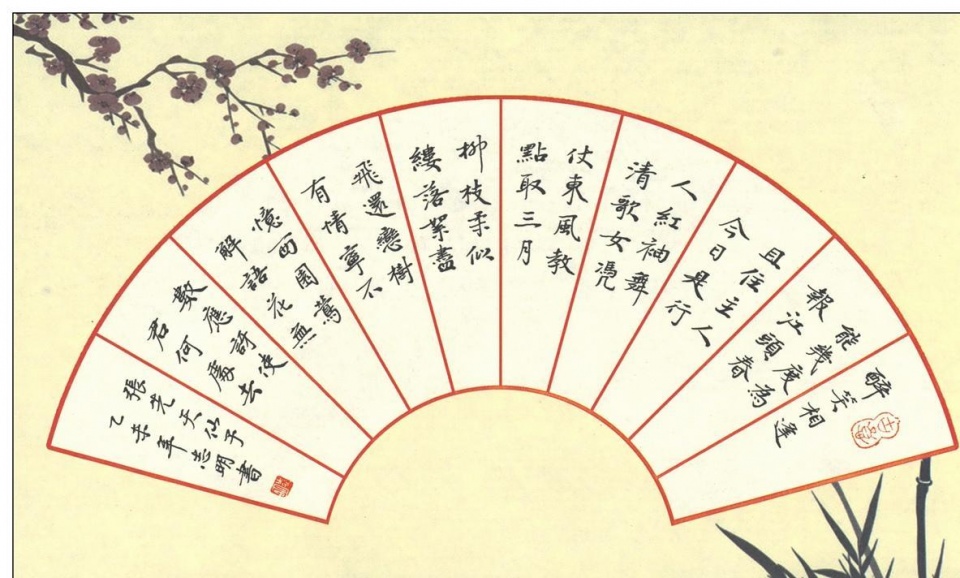 醉笑相逢
能幾度為
報江頭春
且住主人
今日是行
人紅袖舞
清歌女凴
仗東風教
點取三月
柳枝柔似
縷落絮盡
飛還戀樹
有情寧不
憶西園鶯
解語花無
數應訝使
君何處去
張先天仙子
乙未年志明書